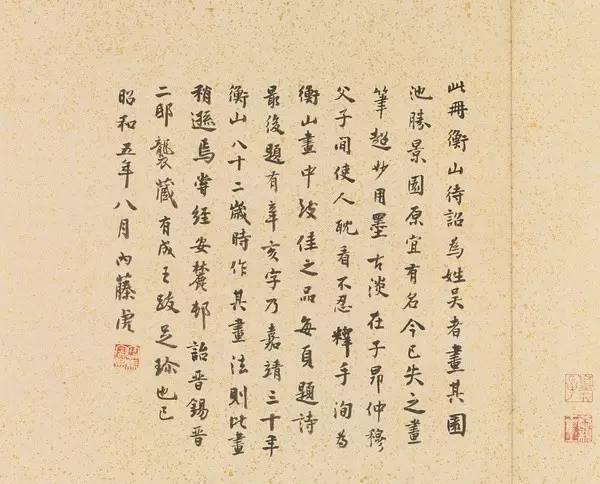 此冊衡山待詔為姓吳者畫其園
池勝景園原宜有名今已失之畫
筆超妙用墨古淡在子昂仲穆
父子間使人耽看不忍釋手洵為
衡山畫中致佳之品每頁題詩
最後題有辛亥字乃嘉靖三十年
衡山八十二歲時作其畫法則比畫
稍遜焉嘗經安麓邨詒晉錫晉
二邸襲藏有成王跋足珍也已
昭和五年八月內藤虎